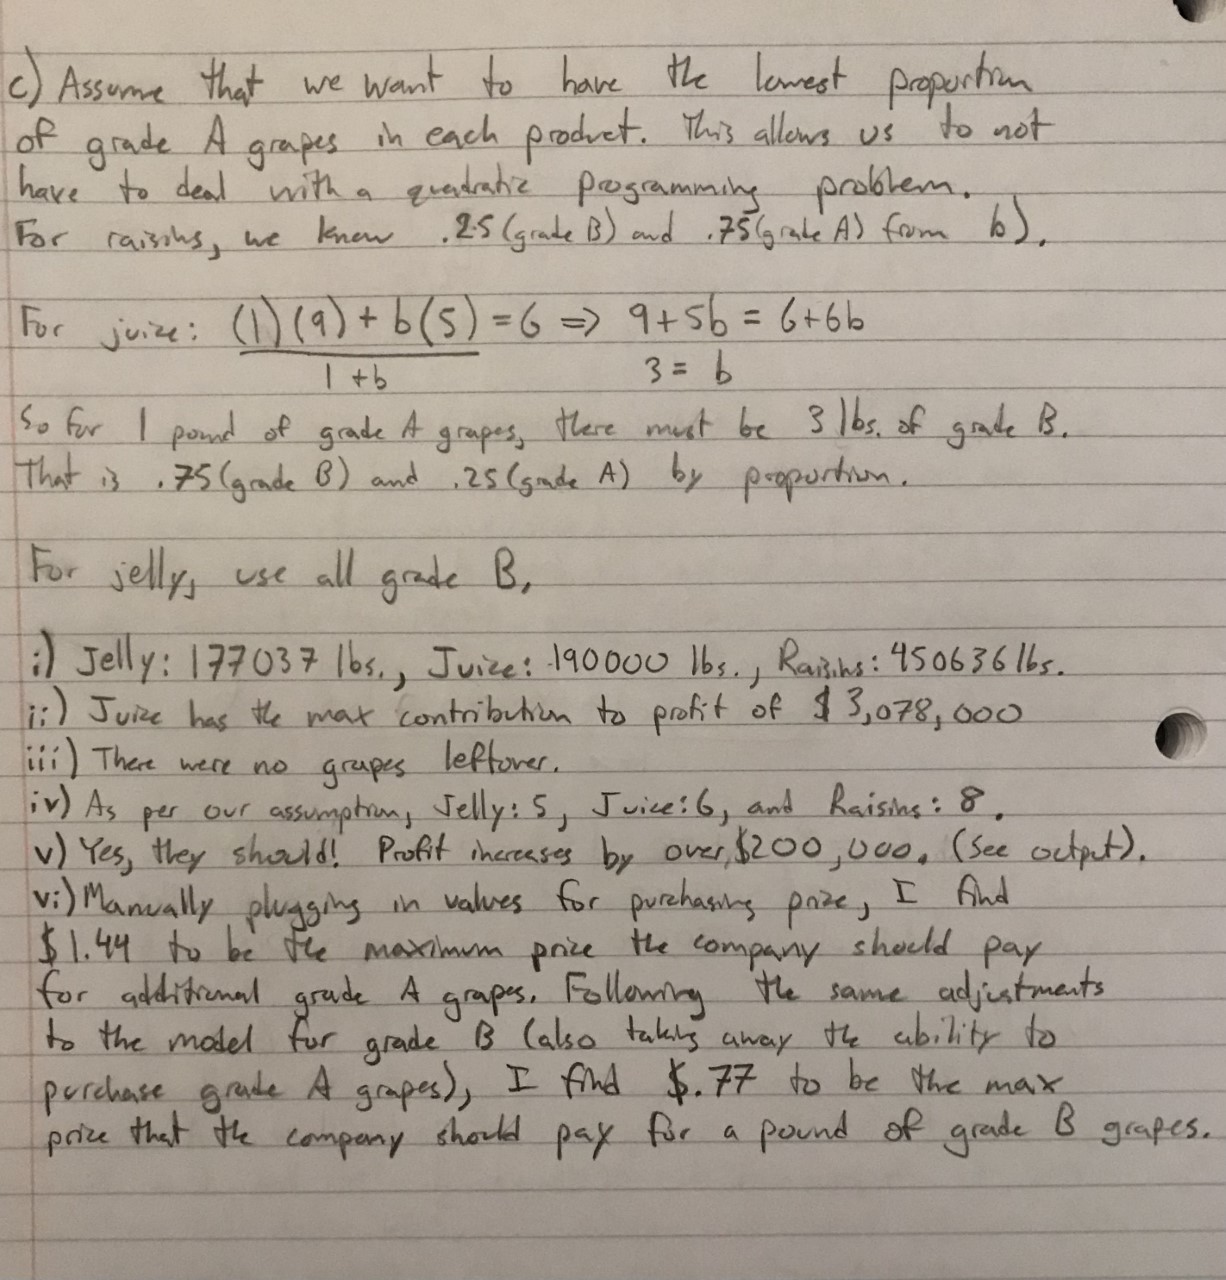 c) Assume that we want to have the lowest proportion
of grade A grapes in each product. This allows us to not
have to deal with a quadratic programming problem.
For raisins, we know .25 (grade B) and .75 (grade A) from b).
For juice: (1)(9) + b(5) = 6 => 9+5b = 6+6b
1+b 3 = b
So for 1 pound of grade A grapes, there must be 3 lbs. of grade B.
That is .75 (grade B) and .25 (grade A) by proportion.
For jelly, use all grade B.
i) Jelly: 177037 lbs., Juice: 190000 lbs., Raisins: 450636 lbs.
ii) Juice has the max contribution to profit of $3,078,000
iii) There were no grapes leftover.
iv) As per our assumption, Jelly: 5, Juice: 6, and Raisins: 8.
v) Yes, they should! Profit increases by over $200,000. (See output).
vi) Manually plugging in values for purchasing price, I find
$1.44 to be the maximum price the company should pay
for additional grade A grapes. Following the same adjustments
to the model for grade B (also taking away the ability to
purchase grade A grapes), I find $.77 to be the max
price that the company should pay for a pound of grade B grapes.